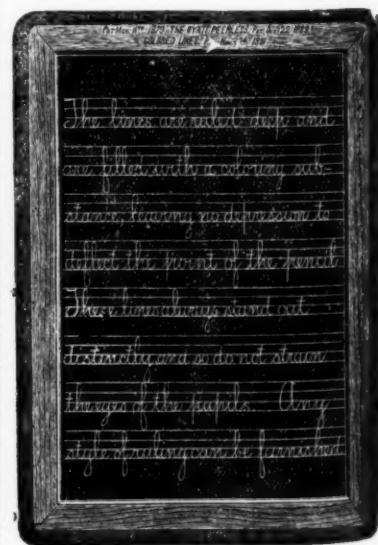 The lines are ruled deep and
are filled with a coloring sub-
stance, leaving no depression to
deflect the point of the pencil
These lines always stand out
distinctly, and so do not strain
the eyes of the pupils. Any
style of ruling can be furnished